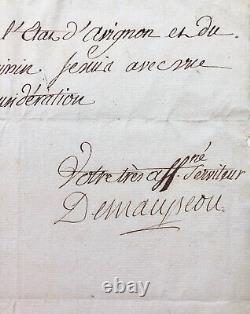 l'Etat d'avignon et du
Je suis avec une
sidération
Votre très aff.né Serviteur
Demaupeou